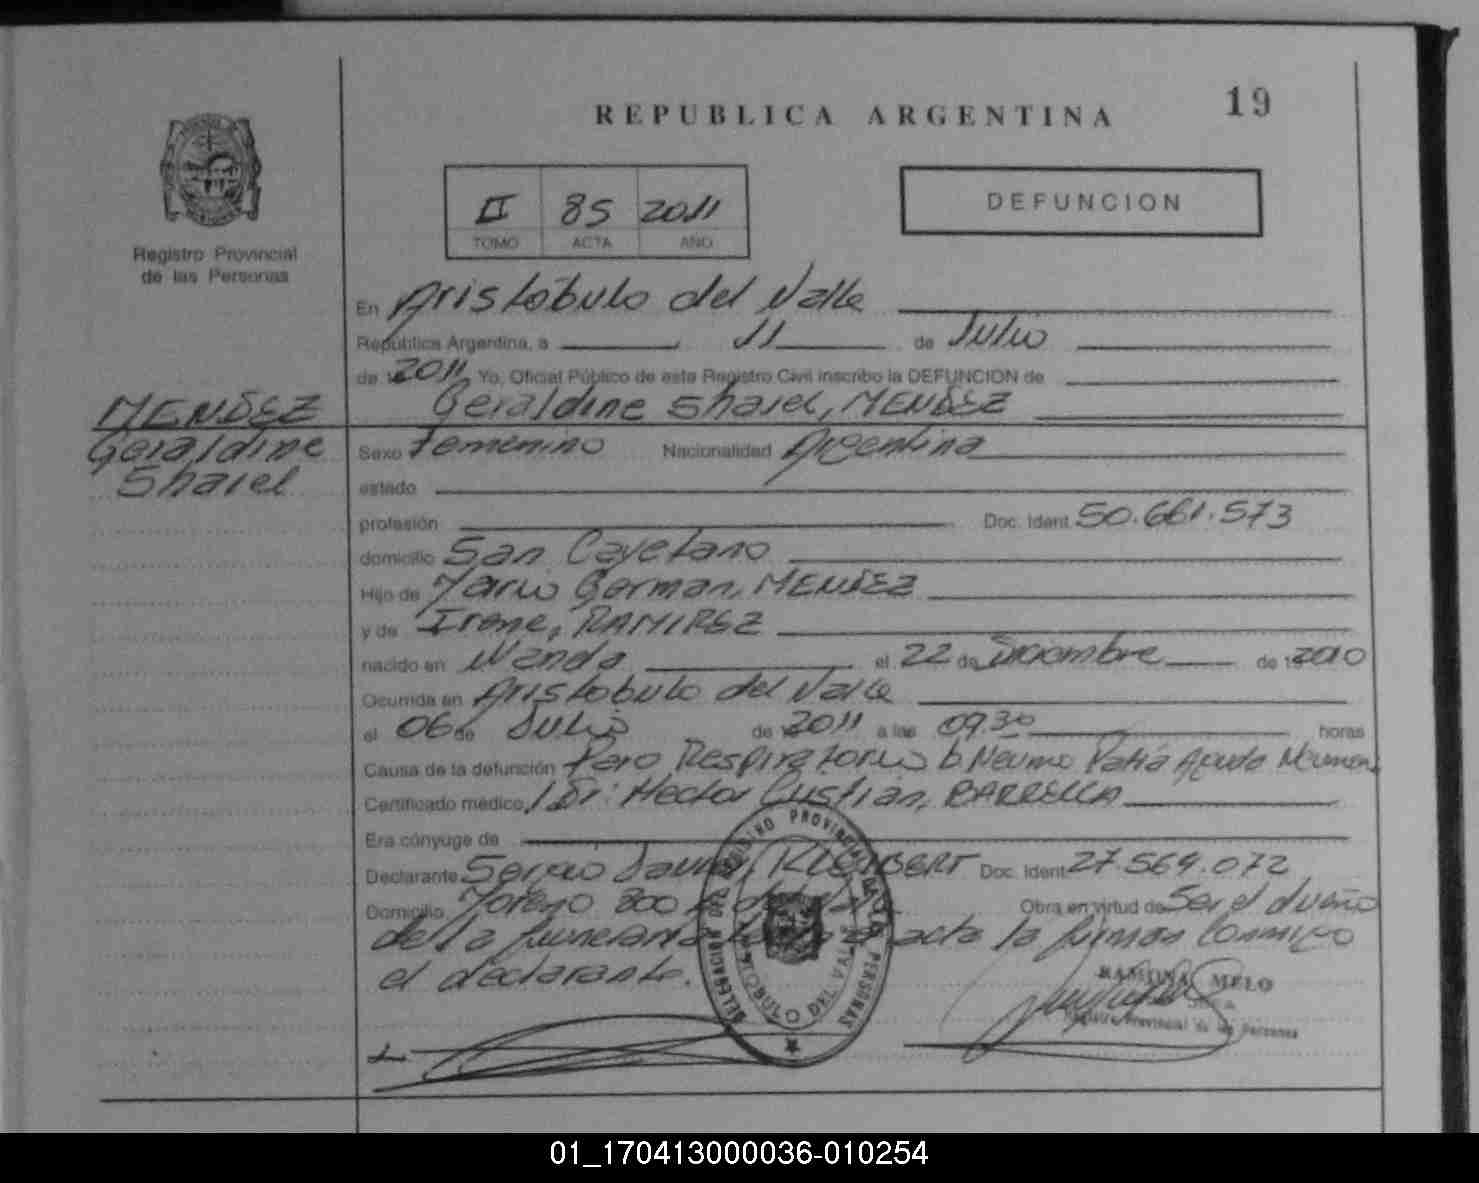 19
REPUBLICA ARGENTINA
DEFUNCION
II 85 2011
TOMO ACTA AÑO
Registro Provincial
de las Personas
En Aristóbulo del Valle
República Argentina, a 11 de Julio
de 2011 Yo, Oficial Público de este Registro Civil inscribo la DEFUNCION de
Geraldine Shaiel, MENDEZ
MENDEZ
Geraldine
Shaiel
Sexo Femenino Nacionalidad Argentina
estado
profesión Doc. Ident. 50.661.573
domicilio San Cayetano
Hijo de Mario German, MENDEZ
y de Irene, RAMIREZ
nacido en Wanda el 22 de Diciembre de 2010
Ocurrida en Aristobulo del Valle
el 06 de Julio de 2011 a las 09.30 horas
Causa de la defunción Paro Respiratorio b. Neumo Patia Aguda
Certificado médico, Dr: Hector Cristian, BARRELLA
Era cónyuge de
Declarante Sergio Doc. Ident. 27.569.072
Domicilio Moreno 800 Obra en virtud de Ser el dueño
de la funeraria acta la firman Conmigo
el declarante.
DELEGACION DEL REGISTRO PROVINCIAL DE LAS PERSONAS
ARISTOBULO DEL VALLE
RAMONA MELO
Registro Provincial de las Personas
01_170413000036-010254